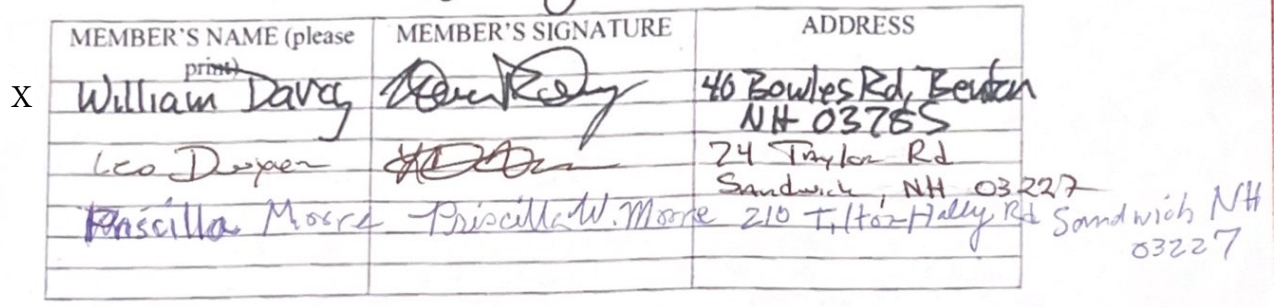 MEMBER'S NAME (please print) MEMBER'S SIGNATURE ADDRESS
X William Darcy 40 Bowles Rd, Benton
NH 03785
Leo Dwyer 24 Taylor Rd
Sandwich, NH 03227
Priscilla Moore Priscilla W. Moore 210 Tilton-Hally Rd Sandwich NH
03227